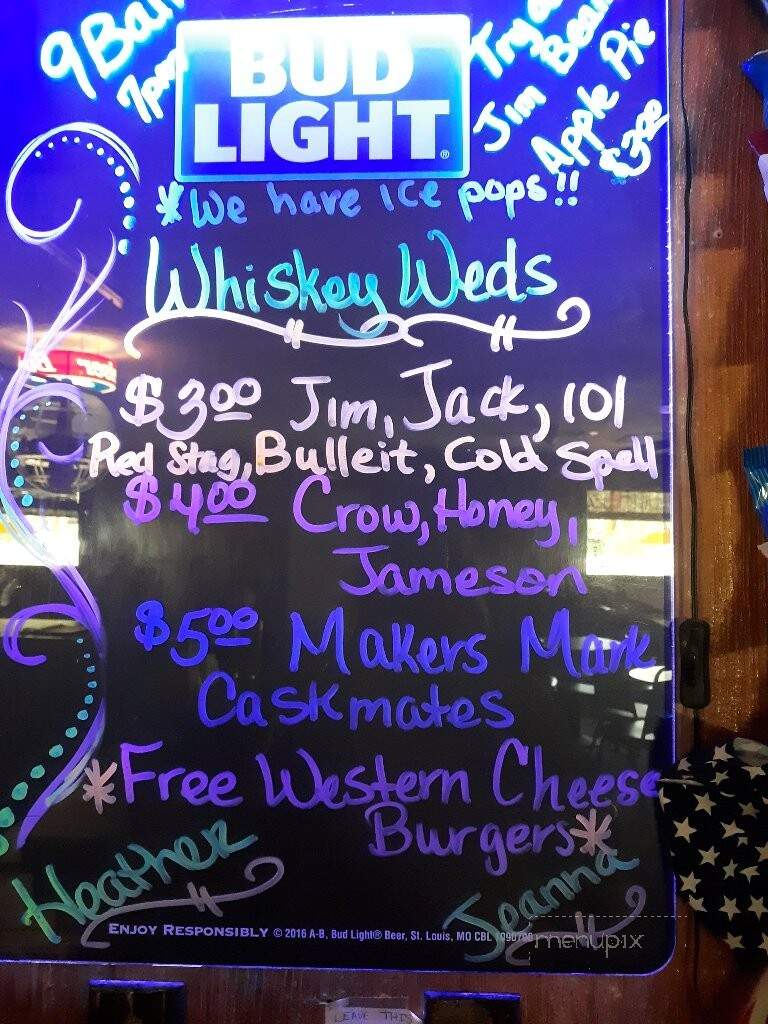 9 Ball
7pm
BUD
LIGHT
®
Try a
Jim Beam
Apple Pie
$3.00
*We have ice pops!!
Whiskey Weds
$3.00 Jim, Jack, 101
Red Stag, Bulleit, Cold Spell
$4.00 Crow, Honey,
Jameson
$5.00 Makers Mark
Caskmates
*Free Western Cheese
Burgers*
Heather
Jeanna
ENJOY RESPONSIBLY © 2016 A-B, Bud Light® Beer, St. Louis, MO CBL
menupix
LEAVE THIS